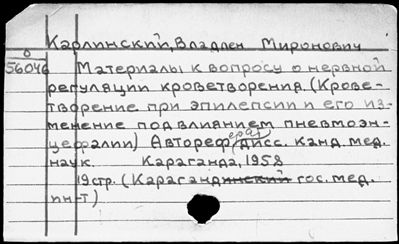 Карлинский, Владлен Миронович
0
56046 Материалы к вопросу о нервной
регуляции кроветворения (Крове-
творение при эпилепсии и его из-
менение под влиянием пневмоэн-
цефалии) Автореферат дисс. канд. мед.
наук. Караганда, 1958
19 стр. (Карагандинский гос. мед.
ин-т)